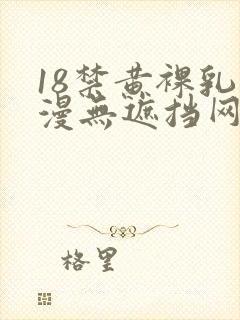 18禁黄裸乳
漫無遮挡网
格里